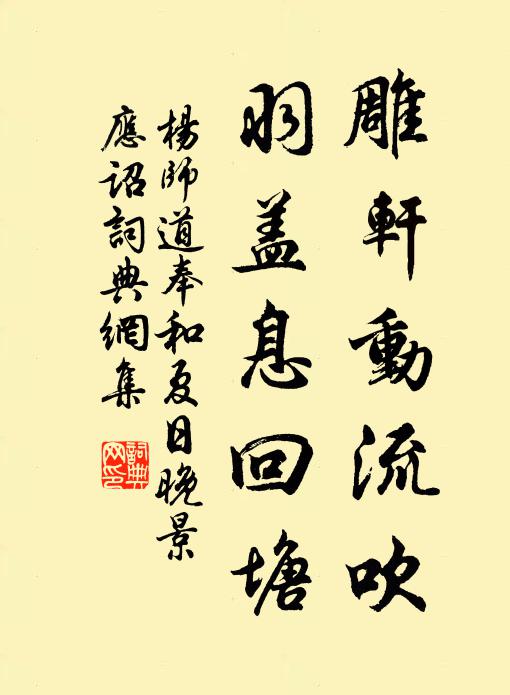 雕軒動流吹
羽蓋息回塘
楊師道奉和夏日晚景
應詔詞典網集
詞典
网印